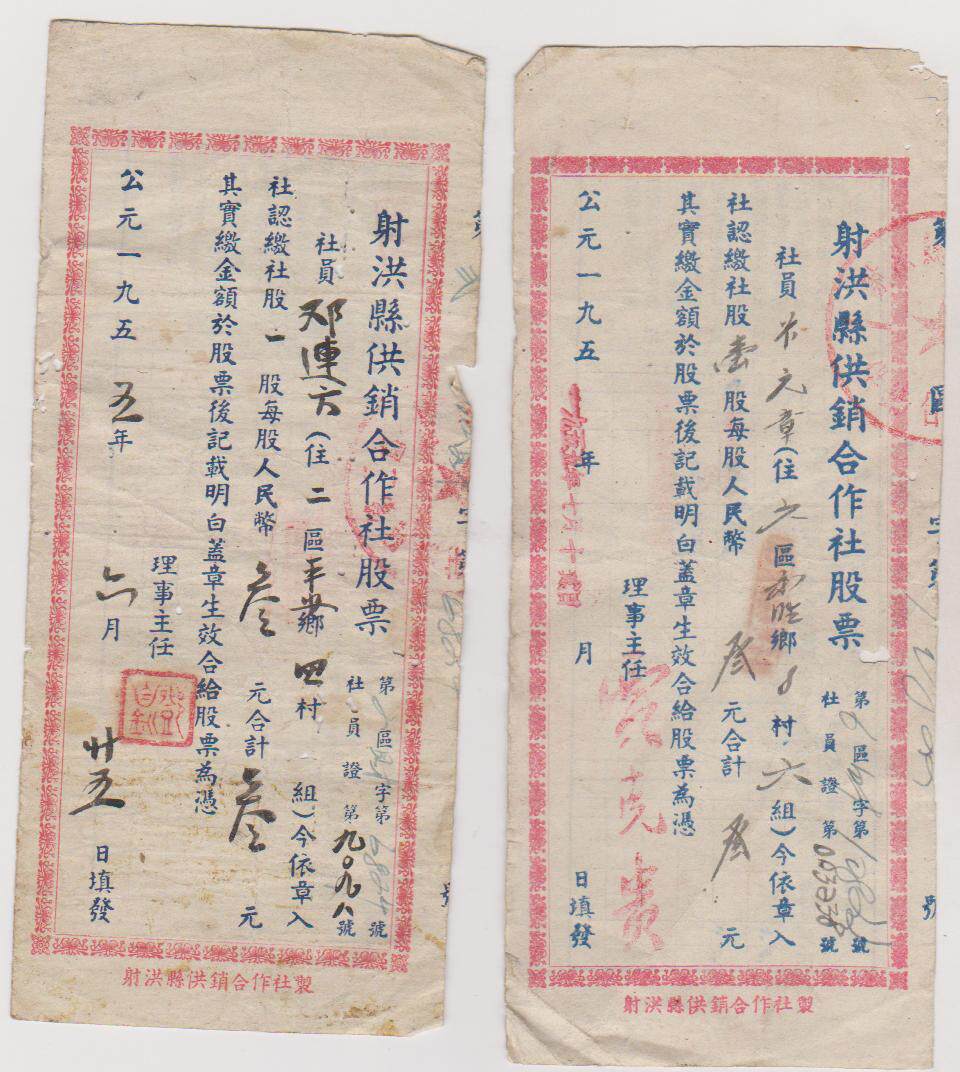 射洪縣供銷合作社股票
第 區 字第 號
社員證第九〇九八號
社員邓連六(住二區 鄉四村 組)今依章入
社認繳社股一股每股人民幣叁元合計叁元
其實繳金額於股票後記載明白蓋章生效合給股票為憑
理事主任
公元一九五五年六月廿五日填發
射洪縣供銷合作社製
第 區 字第 號
射洪縣供銷合作社股票
第6區 字第 號
社員證第 號
社員 元章(住六區 鄉8村六組)今依章入
社認繳社股壹股每股人民幣叁元合計叁元
其實繳金額於股票後記載明白蓋章生效合給股票為憑
理事主任
公元一九五 年 月 日填發
射洪縣供銷合作社製